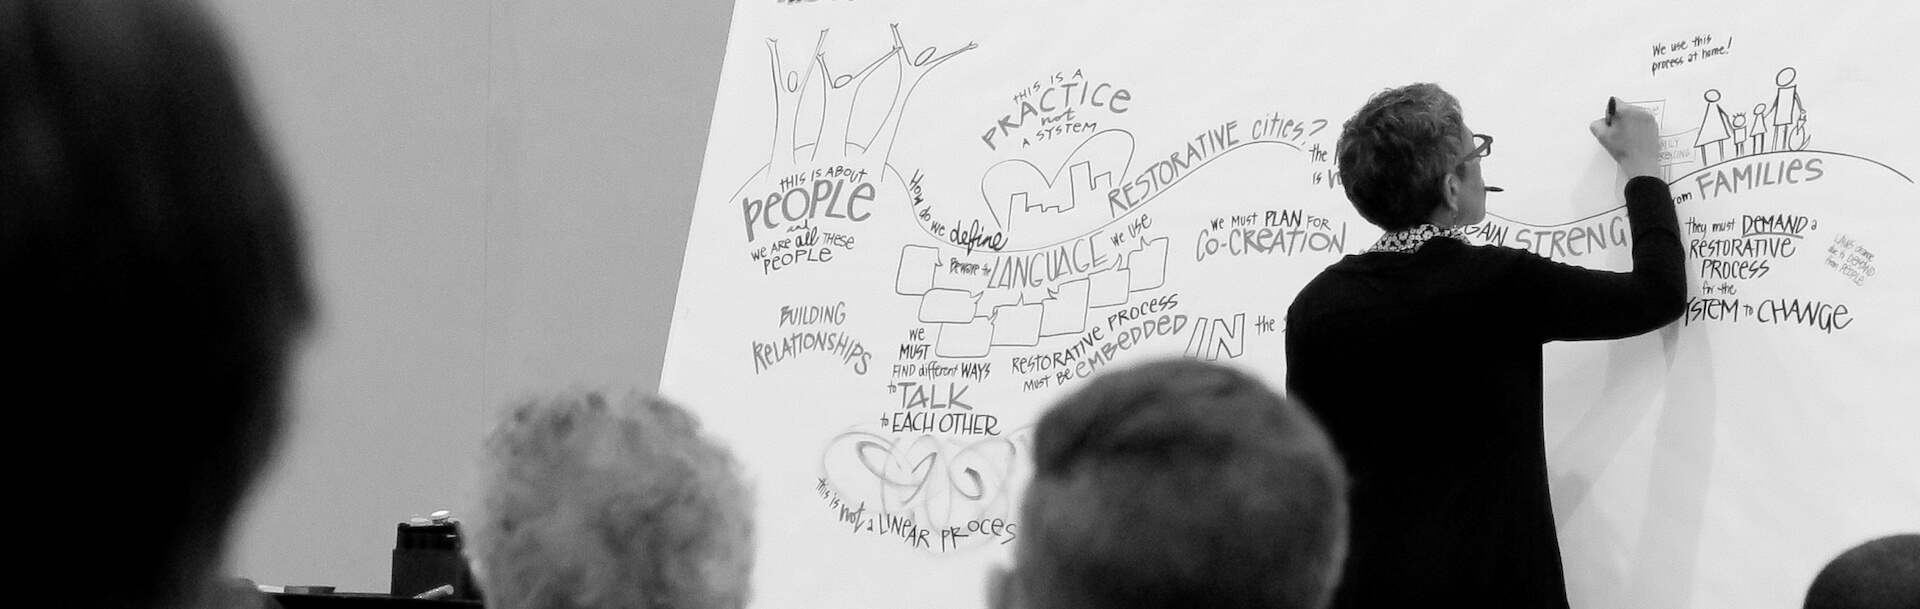 THIS IS ABOUT
PEOPLE
and
WE ARE all THESE
PEOPLE
BUILDING
RELATIONSHIPS
How do we define
RESTORATIVE cities?
THIS IS A
PRACTICE
not
A SYSTEM
Beware the LANGUAGE we use
WE
MUST
FIND different WAYS
to TALK
to EACH OTHER
this is not a LINEAR PROCES
RESTORATIVE PROCESS
MUST BE EMBEDDED
IN the
WE MUST PLAN FOR
CO-CREATION
the
is
GAIN STRENG
from FAMILIES
We use this
process at home!
they must DEMAND a
RESTORATIVE
PROCESS
for the
YSTEM to CHANGE
to DEMAND
from PEOPLE